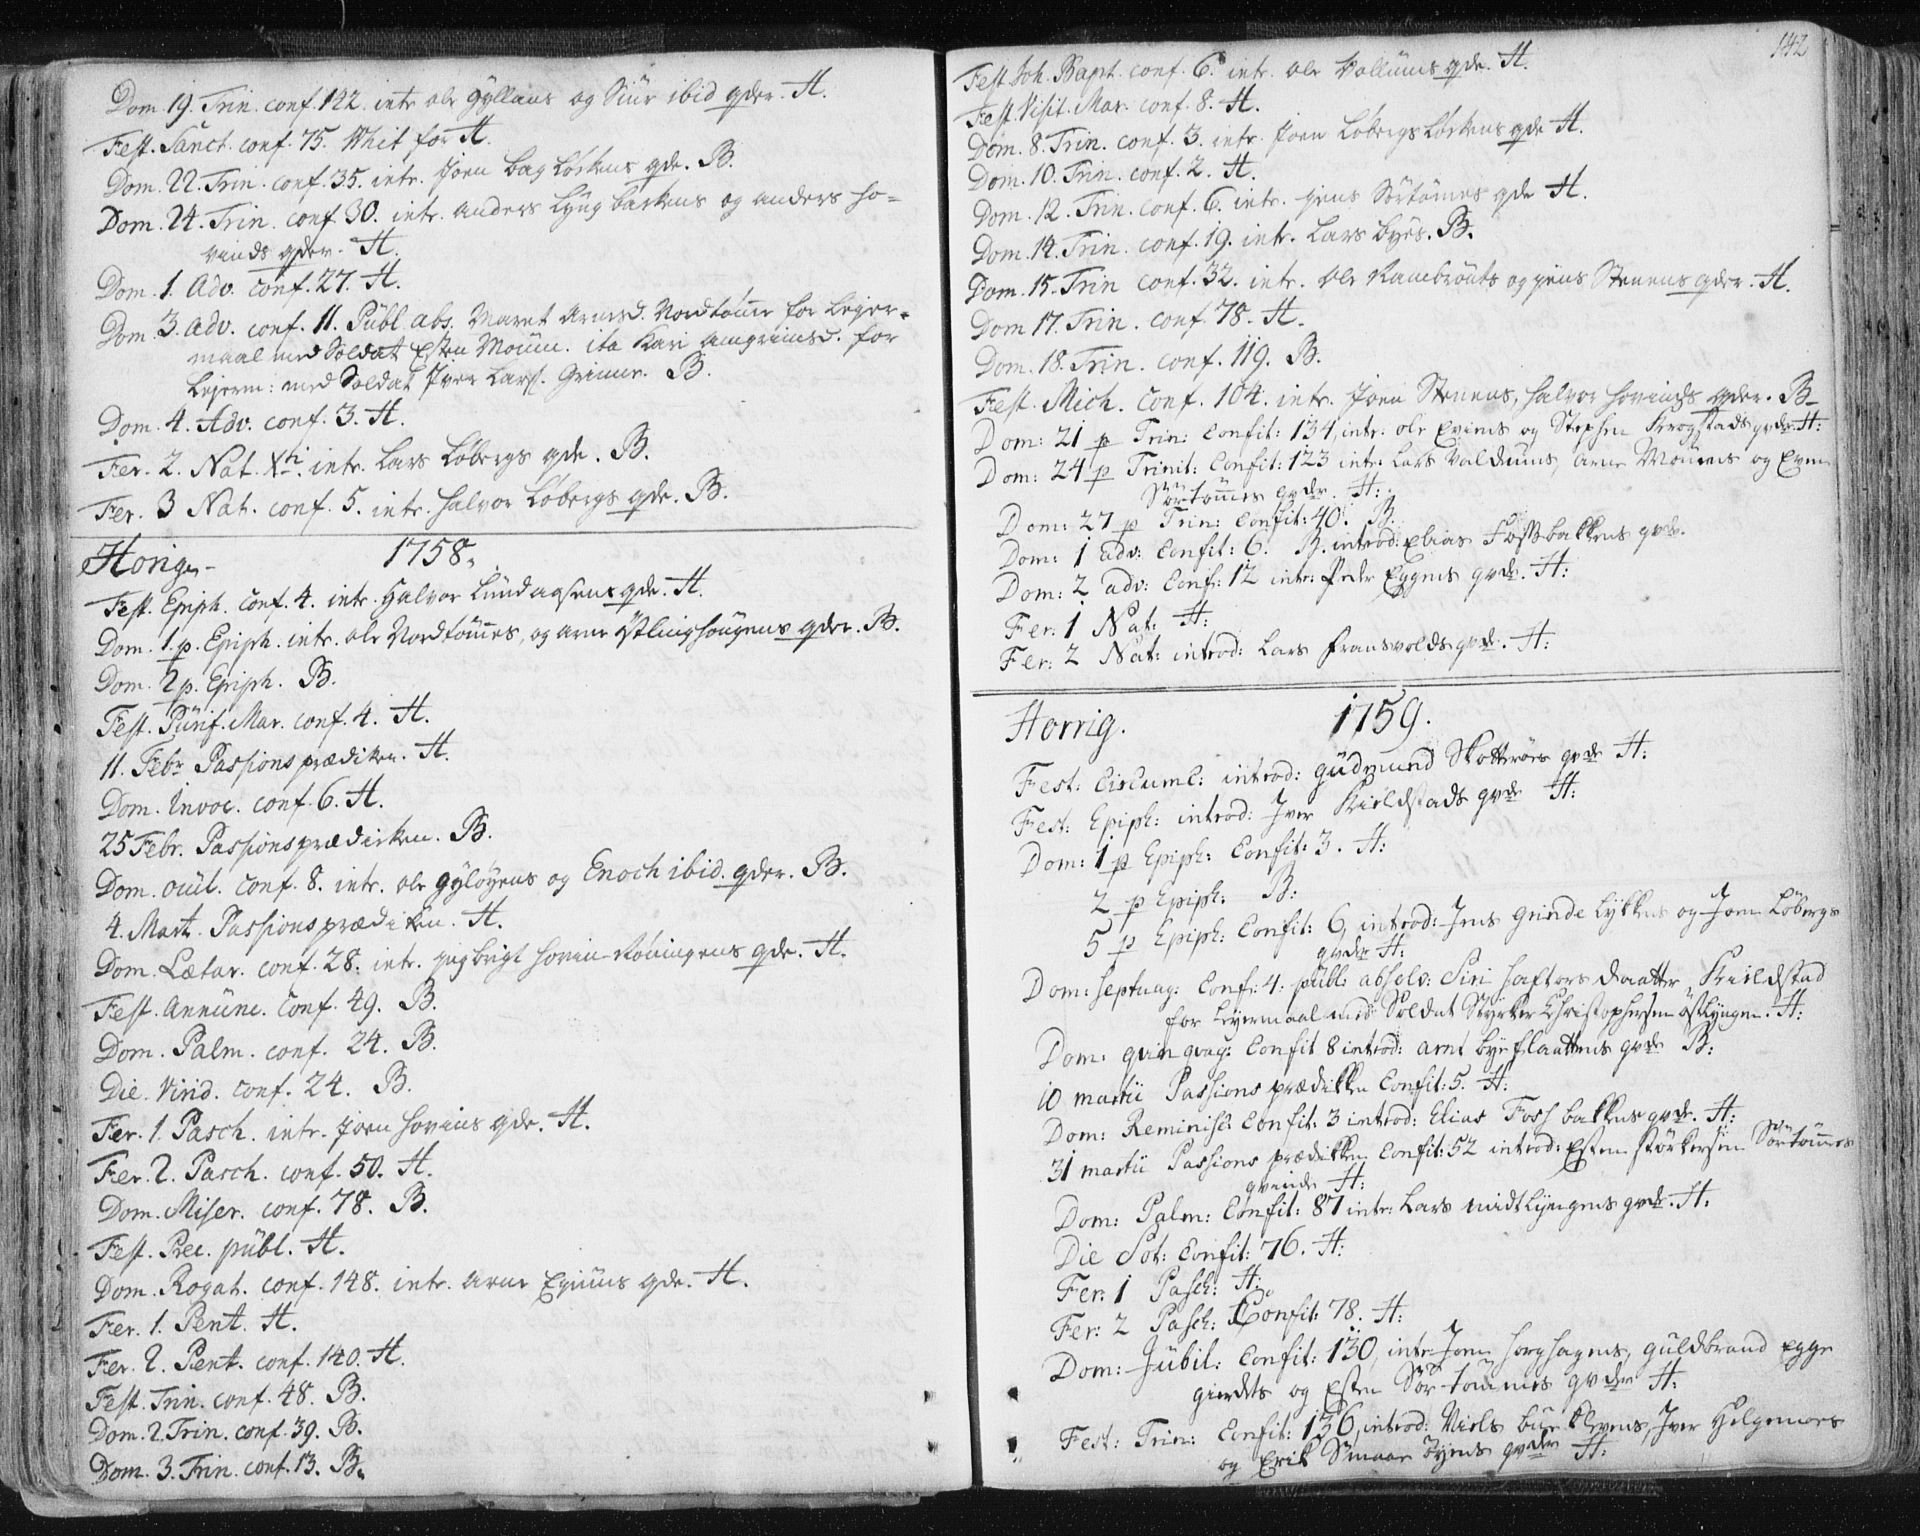 Dom. 19. Trin. conf. 142. intr. ole Gyllaus og Siur ibid qder. H.
Fest. Sanct. conf. 75. Whit for H.
Dom. 22. Trin. conf. 35. intr. Joen bag Løckens qde. B.
Dom. 24. Trin. conf. 30. intr. Anders Lyng barkens og anders Ho-
vinds qder. H.
Dom. 1. Adv. conf. 27. H.
Dom. 3. Adv. conf. 11. Publ. abs. Maret Arnesd. Nordtømme for Lejer-
maal med Soldat Esten Moum. ita Kari Amgrimsd. for
Lejerm: med Soldat Iver Lars. Grimme. B.
Dom. 4. Adv. conf. 3. H.
Fer. 2. Nat. Xti intr. Lars Løbergs qde. B.
Fer. 3 Nat. conf. 5. intr. Halvor Løbergs qde. B.
Horig. 1758.
Fest. Epiph. conf. 4. intr. Halvor Lundagsens qde. H.
Dom. 1. p. Epiph. intr. ole Nordtømmes, og Arne Østlinghougens qder. B.
Dom. 2 p. Epiph. B.
Fest. Purif. Mar. conf. 4. H.
11. Febr. Passions prædiken. H.
Dom. Invoc. conf. 6. H.
25 Febr. Passions prædicken. B.
Dom. ocul. conf. 8. intr. ole Gyløyens og Enoch ibid. qder. B.
4. Mart. Passions prædiken. H.
Dom. Lætar. conf. 28. intr. Ingbrigt Hovin-Røningens qde. H.
Fest. Annunc. conf. 49. B.
Dom. Palm. conf. 24. B.
Die. Virid. conf. 24. B.
Fer. 1. Pasch. intr. Joen Hovins qde. H.
Fer. 2. Pasch. conf. 50. H.
Dom. Miser. conf. 78. B.
Fest. Prec. publ. H.
Dom. Rogat. conf. 148. intr. Arne Egnuns qde. H.
Fer. 1. Pent. H.
Fer. 2. Pent. conf. 140. H.
Fest. Trin. conf. 48. B.
Dom. 2. Trin. conf. 39. B.
Dom. 3. Trin. conf. 13. B.
142
Fest Joh. Bapt. conf. 6. intr. ole Vollums qde. H.
Fest. Visit. Mar. conf. 8. H.
Dom. 8. Trin. conf. 3. intr. Joen Løbergs Løckens qde H.
Dom. 10. Trin. conf. 2. H.
Dom. 12. Trin. conf. 6. intr. Jens Sørtømes qde H.
Dom. 14. Trin. conf. 19. intr. Lars Byes. B.
Dom. 15. Trin conf. 32. intr. Ole Rambrøuts og Jens Stenens qder. H.
Dom 17. Trin. conf. 78. H.
Dom. 18. Trin. conf. 119. B.
Fest. Mich. conf. 104. intr. Joen Stenens, Halvor Hovinds qder. B
Dom: 21 p Trin: Confit: 134, intr. ole Evims og Stephen Krogstads qvdr. H:
Dom: 24 p Trinit: Confit: 123 intr: Lars Valdums, Arne Moums og Even
Sørtømes qvdr. H:
Dom: 27 p Trin: Confit: 40. B.
Dom: 1 adv: Confit: 6. B. introd: Elias Fossbakkens qvdr.
Dom: 2 adv: Conf: 12 intr: Peder Eggens qvdr. H:
Fer: 1 Nat: H:
Fer: 2 Nat: introd: Lars Fransvolds qvdr. H:
Horrig. 1759.
Fest: Circumc: introd: Gudmund Skotrøes qvde H:
Fest: Epiph: introd: Iver Kieldstads qvde H:
Dom: 1 p Epiph: Confit: 3. H:
2 p Epiph: B:
5 p Epiph: Confit: 6, introd: Jens Grinde Lykkens og Joen Løbergs
qvder H:
Dom: Septuag: Conf: 4: publ: absolv: Siri Haftors daatter Kieldstad
for Leyermaal med Soldat Styrker Christophersen Østlyngen. H:
Dom: qvinqvag: Confit 8 introd: Arnt bye flaattens qvde B:
10 martii Passions prædikken Confit: 5. H:
Dom: Reminisc: Confit: 3 introd: Elias Foss bakkens qvdr. H:
31 martii Passions prædikken Confit: 52 introd: Esten Størkersen Sørtømes
qvinde H:
Dom: Palm: Confit: 87 intr: Lars midtlyngens qvdr. H:
Die Sot: Confit: 76. H:
Fer: 1 Pasch: H:
Fer: 2 Pasch: Confit: 78. H:
Dom: Jubil: Confit: 130, intr: Joen Horghagens, Guldbrand Egge
gierdets og Esten Sør-tømmes qvder H:
Fest: Trin: Confit: 136, introd: Niels bue klevens, Iver Helgemoes
og Erik Smaae øyens qvder H: